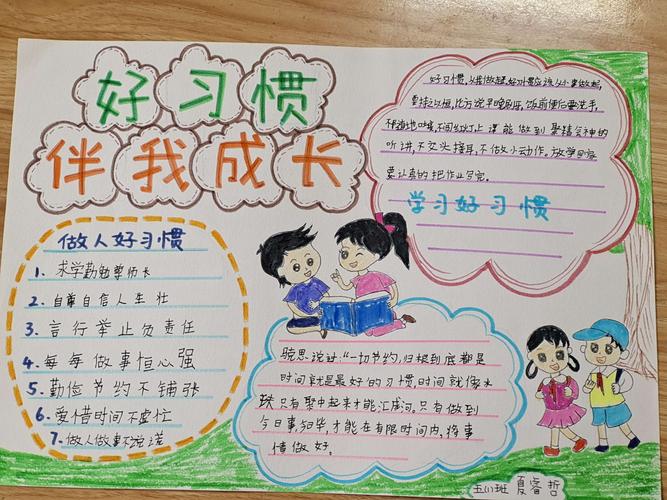 好习惯
伴我成长
做人好习惯
1. 求学勤勉尊师长
2. 自尊自信人生壮
3. 言行举止负责任
4. 每每做事恒心强
5. 勤俭节约不铺张
6. 爱惜时间不虚忙
7. 做人做事不说谎
好习惯,从我做起,好习惯应该从小事做起,
要持之以恒,比方说早晚刷牙,饭前便后要洗手,
不随地吐痰,不闯红灯,上课能做到聚精会神的
听讲,不交头接耳,不做小动作。放学回家
要认真的把作业写完。
学习好习惯
说过:“一切节约,归根到底都是
时间就是最好的习惯,时间就像水
只有聚中起来才能汇成河。只有做到
今日事,今日毕,才能在有限时间内,将事
情做好。
五(1)班 夏睿哲